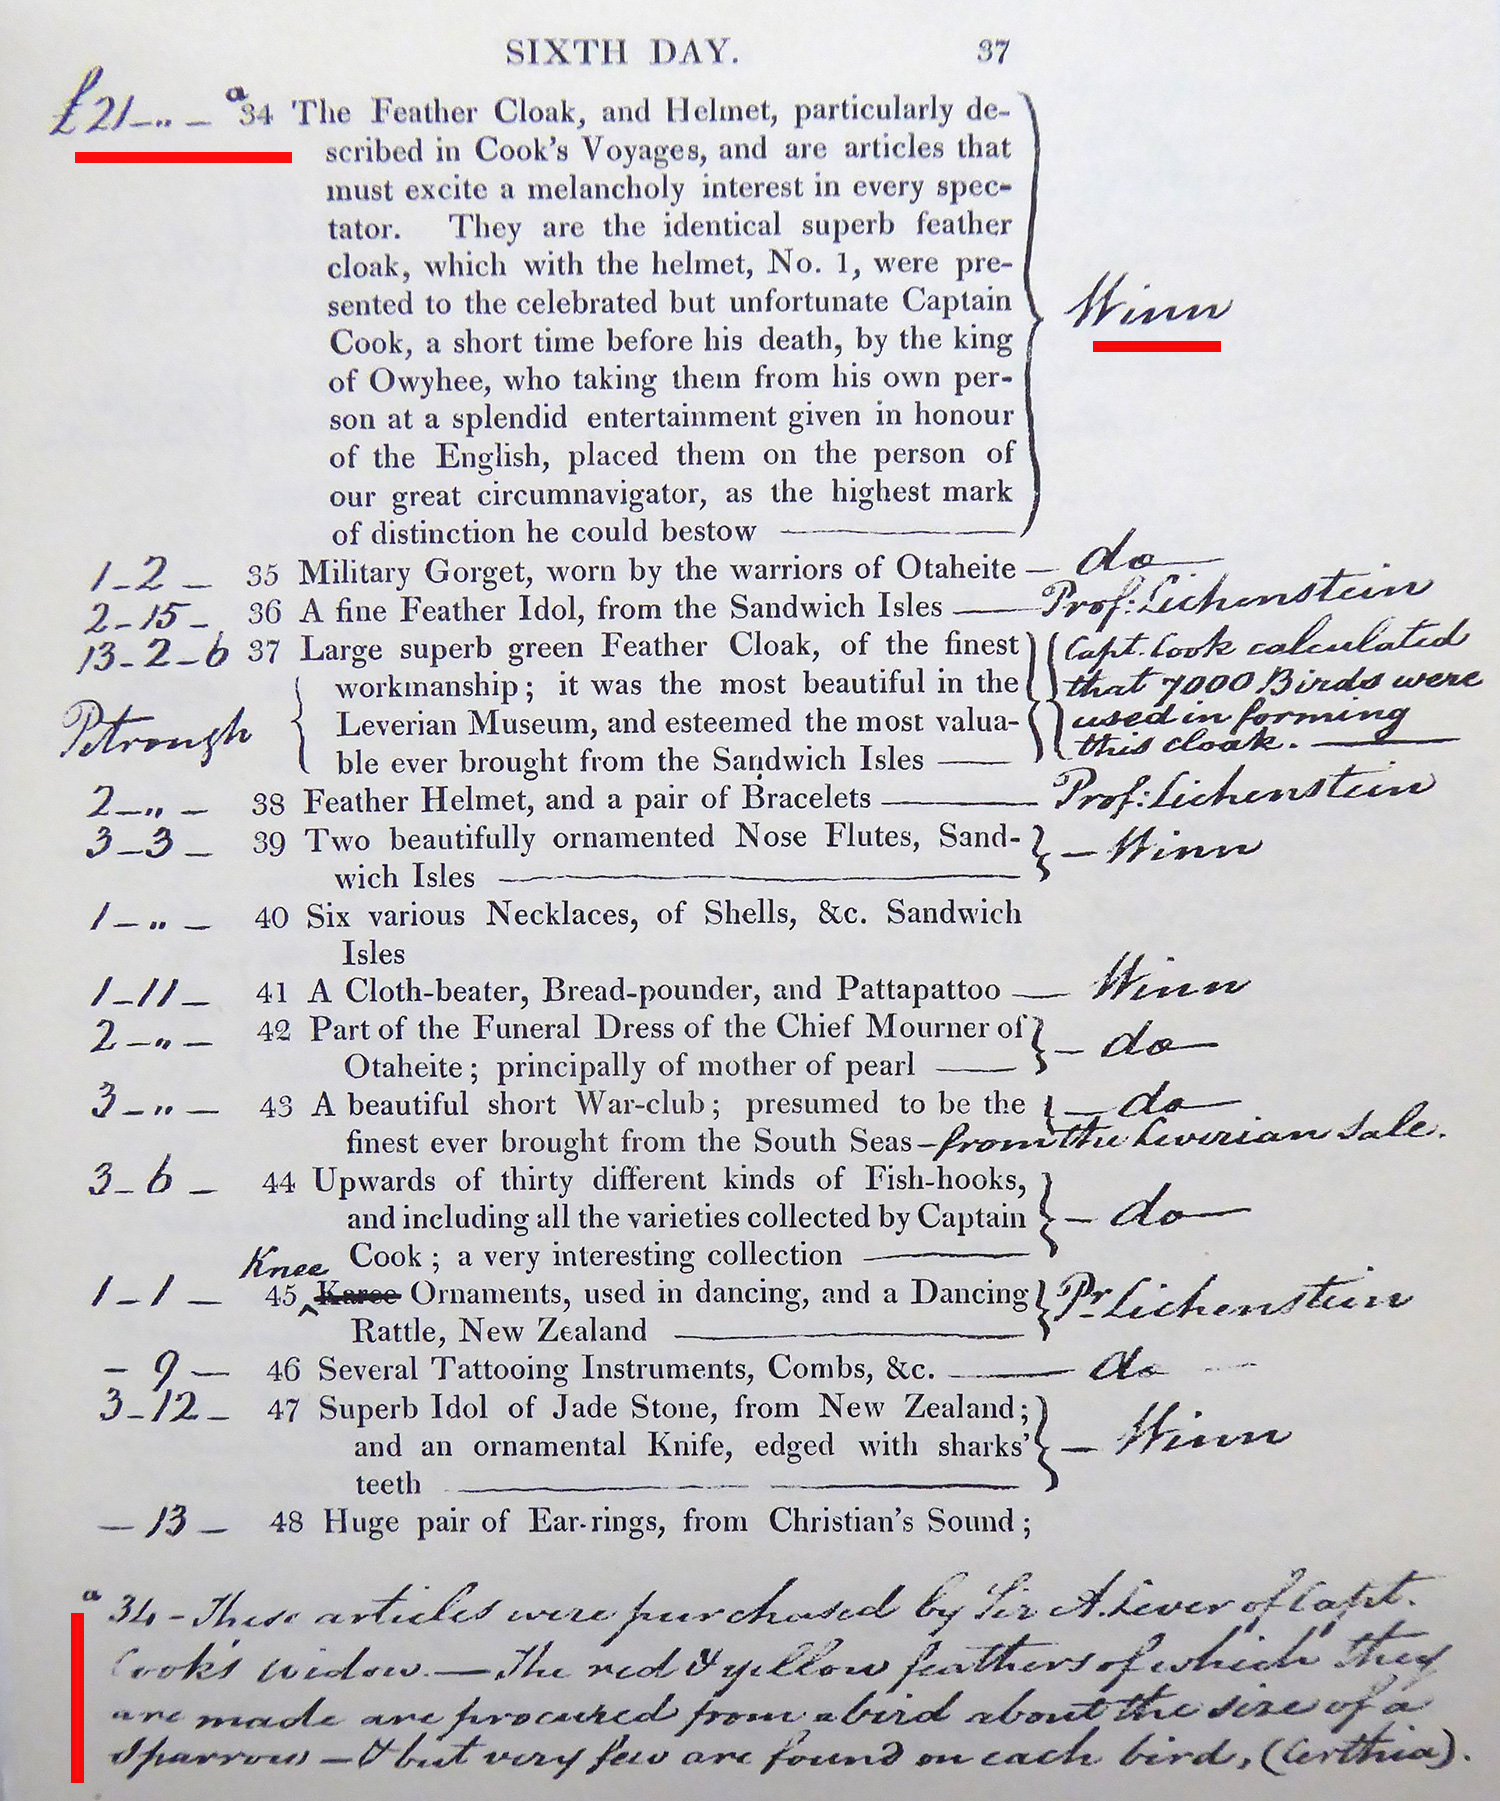 SIXTH DAY. 37
£21-"- a34 The Feather Cloak, and Helmet, particularly de-
scribed in Cook's Voyages, and are articles that
must excite a melancholy interest in every spec-
tator. They are the identical superb feather
cloak, which with the helmet, No. 1, were pre-
sented to the celebrated but unfortunate Captain Winn
Cook, a short time before his death, by the king
of Owyhee, who taking them from his own per-
son at a splendid entertainment given in honour
of the English, placed them on the person of
our great circumnavigator, as the highest mark
of distinction he could bestow
1-2- 35 Military Gorget, worn by the warriors of Otaheite - do
2-15- 36 A fine Feather Idol, from the Sandwich Isles — Prof: Lichenstein
13-2-6 37 Large superb green Feather Cloak, of the finest Capt. Cook calculated
workmanship; it was the most beautiful in the that 7000 Birds were
Petrough Leverian Museum, and esteemed the most valua- used in forming
ble ever brought from the Sandwich Isles — this cloak. —
2-"- 38 Feather Helmet, and a pair of Bracelets — Prof: Lichenstein
3-3- 39 Two beautifully ornamented Nose Flutes, Sand- - Winn
wich Isles
1-"- 40 Six various Necklaces, of Shells, &c. Sandwich
Isles
1-11- 41 A Cloth-beater, Bread-pounder, and Pattapattoo — Winn
2-"- 42 Part of the Funeral Dress of the Chief Mourner of - do
Otaheite; principally of mother of pearl —
3-"- 43 A beautiful short War-club; presumed to be the - do
finest ever brought from the South Seas - from the Leverian Sale.
3-6- 44 Upwards of thirty different kinds of Fish-hooks,
and including all the varieties collected by Captain - do
Cook; a very interesting collection —
Knee
1-1- 45 ^ Karee Ornaments, used in dancing, and a Dancing Pr Lichenstein
Rattle, New Zealand —
-9- 46 Several Tattooing Instruments, Combs, &c. — do
3-12- 47 Superb Idol of Jade Stone, from New Zealand;
and an ornamental Knife, edged with sharks' - Winn
teeth —
-13- 48 Huge pair of Ear-rings, from Christian's Sound;
a 34 - These articles were purchased by Sir A. Lever of Capt.
Cook's widow. — The red & yellow feathers of which they
are made are procured from a bird about the size of a
Sparrow - & but very few are found on each bird, (Certhia).